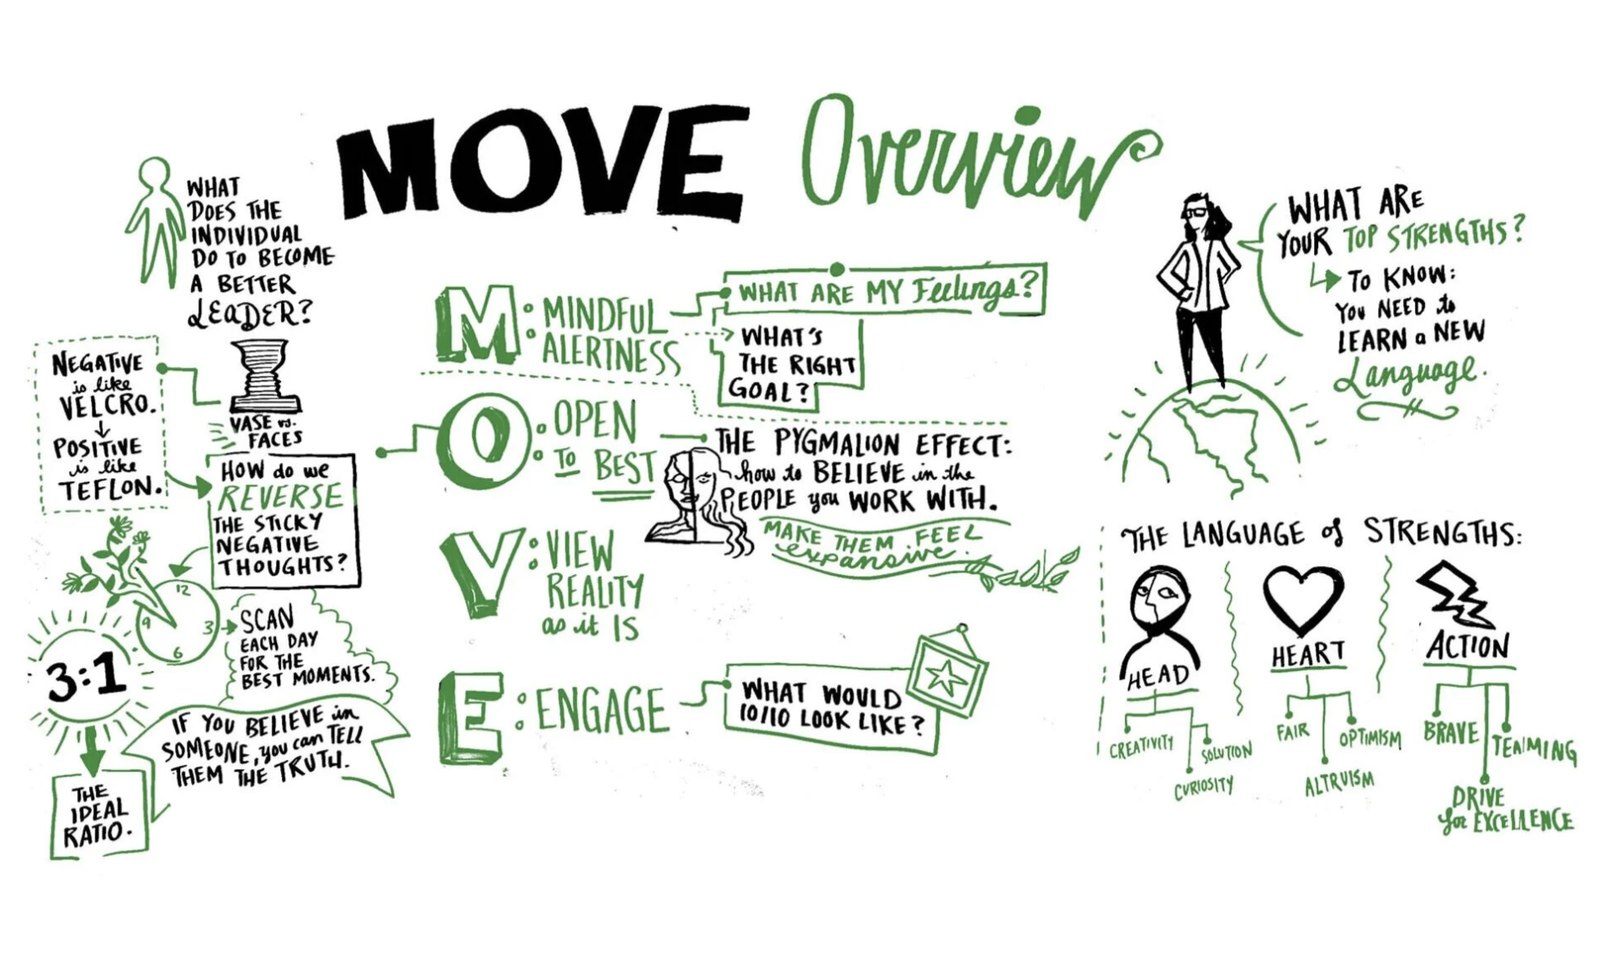 MOVE Overview
WHAT
DOES THE
INDIVIDUAL
DO TO BECOME
A BETTER
LEADER?
NEGATIVE
is like
VELCRO.
POSITIVE
is like
TEFLON.
VASE vs.
FACES
HOW do we
REVERSE
THE STICKY
NEGATIVE
THOUGHTS?
12
3
6
9
SCAN
EACH DAY
FOR THE
BEST MOMENTS.
3:1
THE
IDEAL
RATIO.
IF YOU BELIEVE in
SOMEONE, you can TELL
THEM THE TRUTH.
M: MINDFUL
ALERTNESS
WHAT ARE MY Feelings?
WHAT'S
THE RIGHT
GOAL?
O: OPEN
TO BEST
THE PYGMALION EFFECT:
how to BELIEVE in the
PEOPLE you WORK WITH.
MAKE THEM FEEL
expansive.
V: VIEW
REALITY
as it IS
E: ENGAGE
WHAT WOULD
10/10 LOOK LIKE?
WHAT ARE
YOUR TOP STRENGTHS?
TO KNOW:
YOU NEED to
LEARN a NEW
Language.
THE LANGUAGE of STRENGTHS:
HEAD
CREATIVITY
SOLUTION
CURIOSITY
HEART
FAIR
OPTIMISM
ALTRUISM
ACTION
BRAVE
TEAMING
DRIVE
for EXCELLENCE